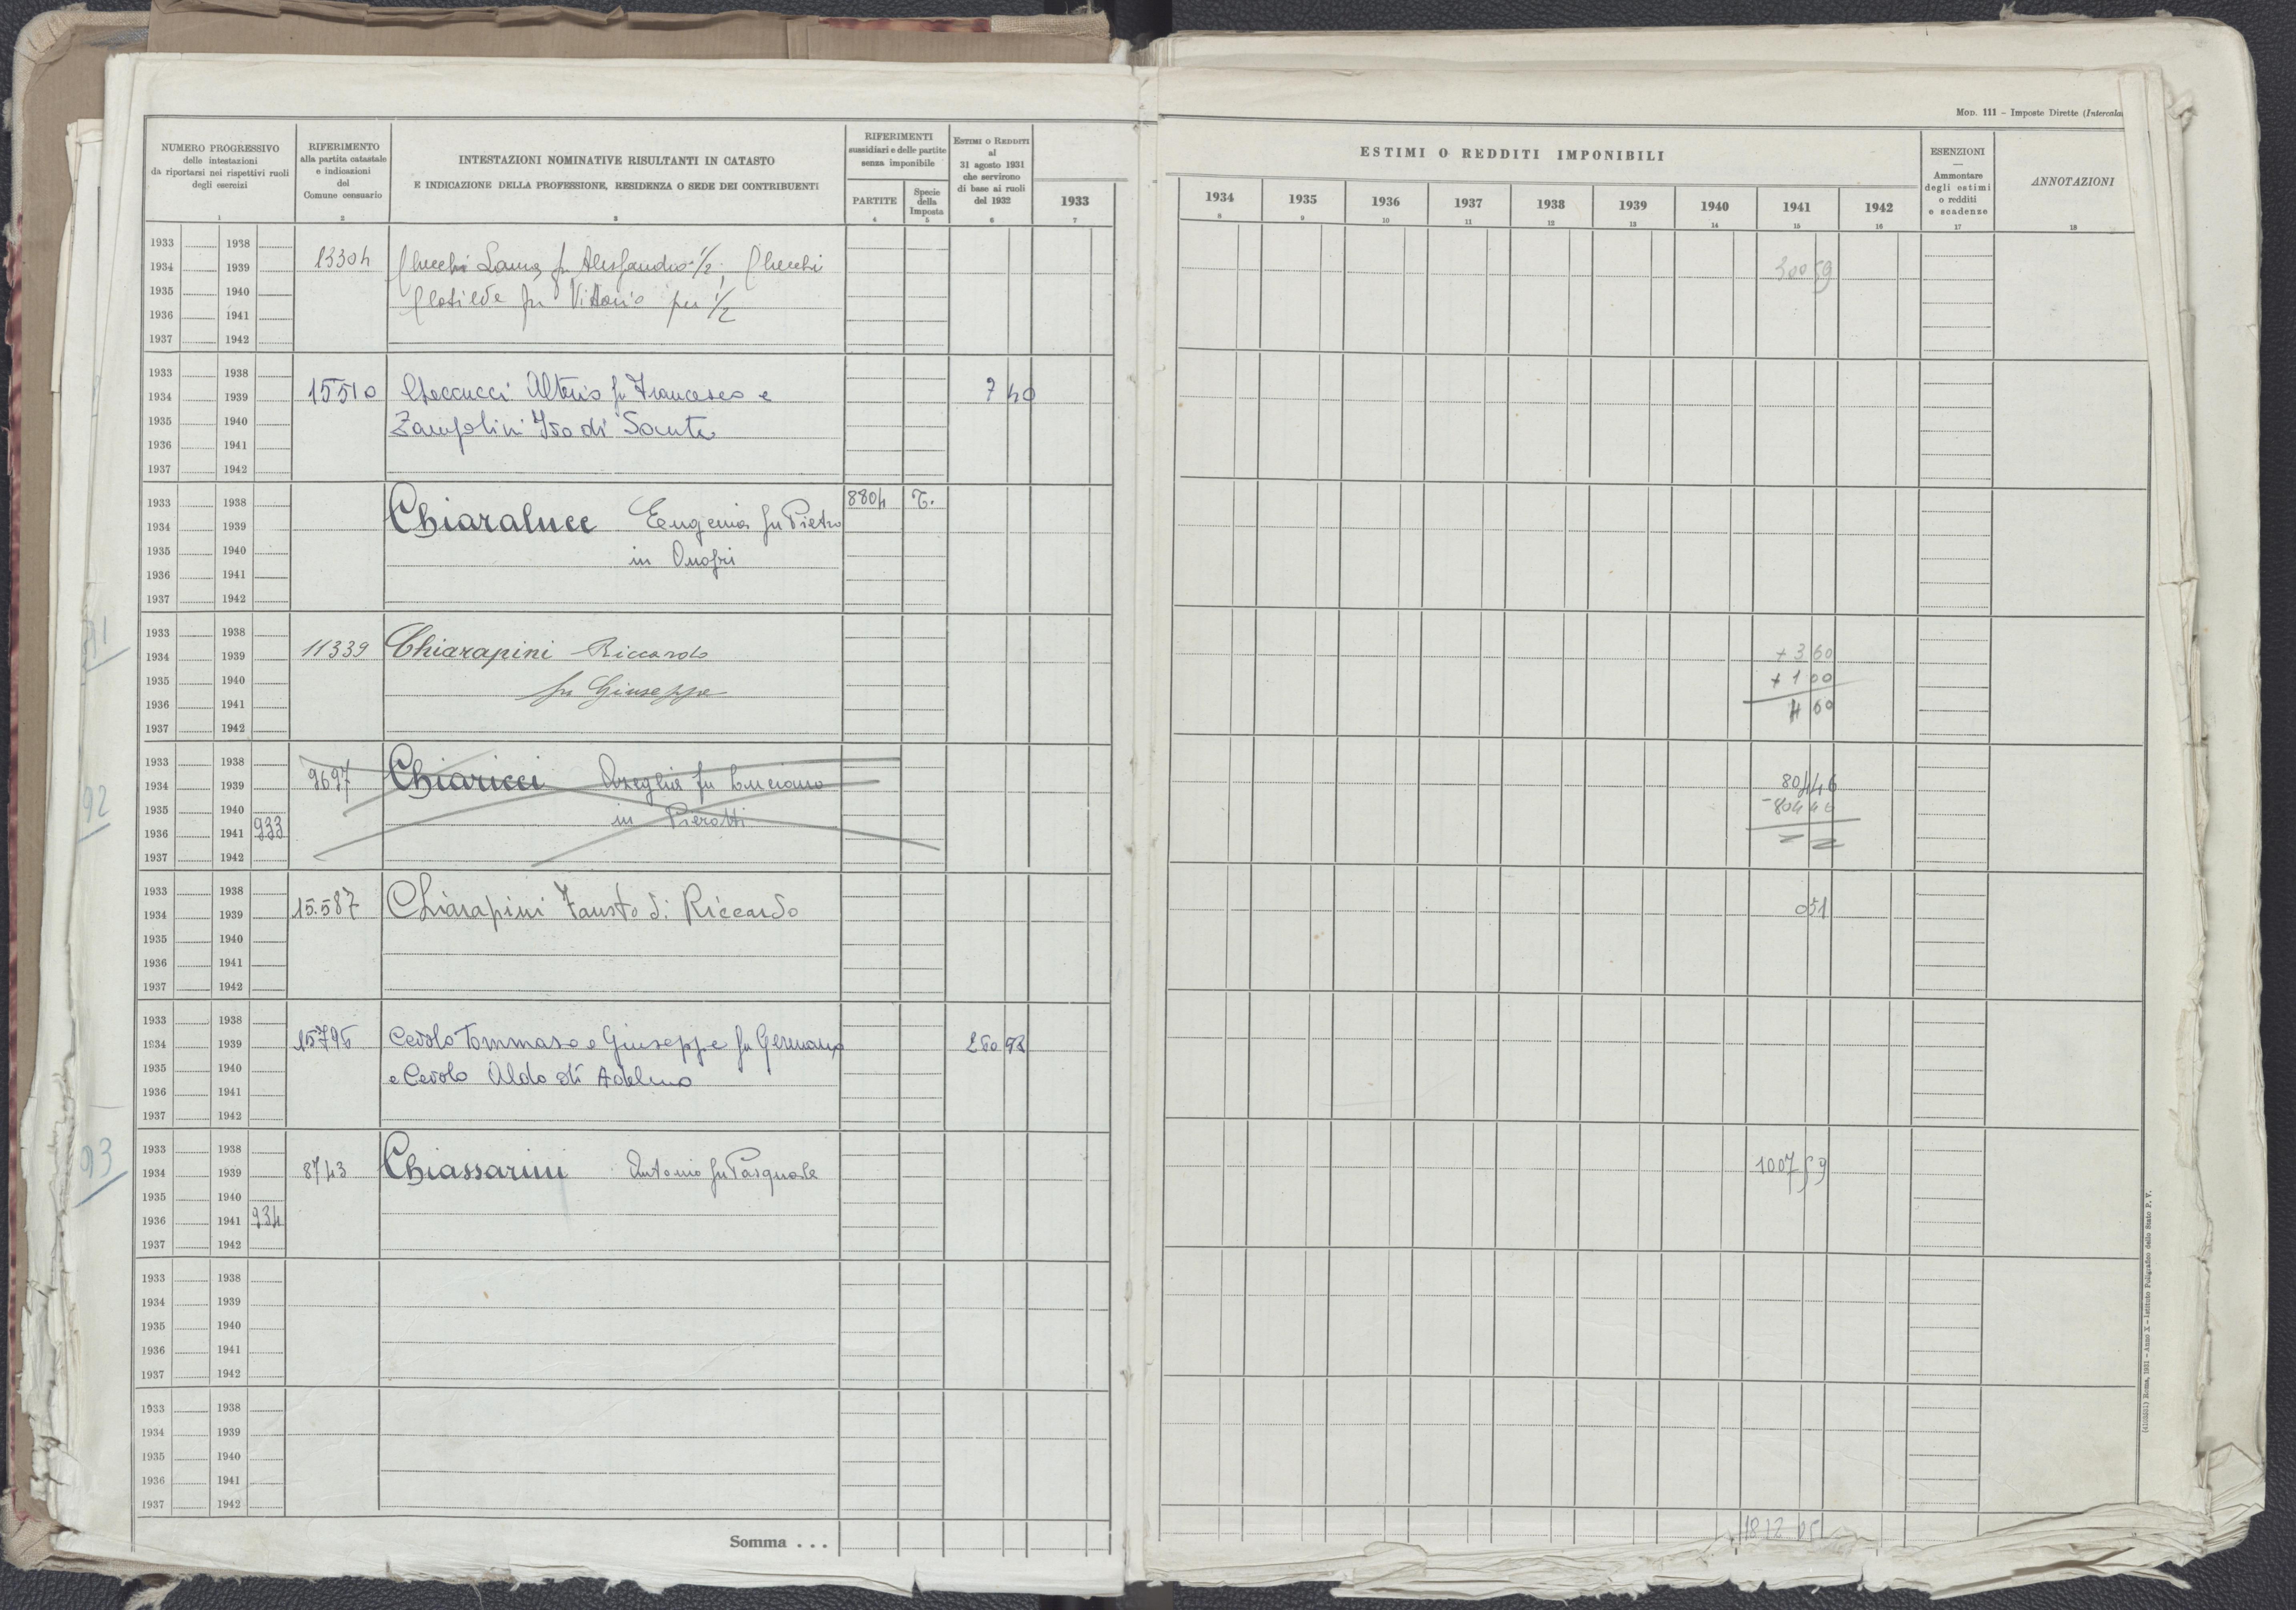 MOD. 111 – Imposte Dirette (Intercala
NUMERO PROGRESSIVO
delle intestazioni
da riportarsi nei rispettivi ruoli
degli esercizi
1
RIFERIMENTO
alla partita catastale
e indicazioni
del
Comune censuario
2
INTESTAZIONI NOMINATIVE RISULTANTI IN CATASTO
E INDICAZIONE DELLA PROFESSIONE, RESIDENZA O SEDE DEI CONTRIBUENTI
3
RIFERIMENTI
sussidiari e delle partite
senza imponibile
PARTITE
4
Specie
della
Imposta
5
ESTIMI O REDDITI
al
31 agosto 1931
che servirono
di base ai ruoli
del 1932
6
1933
7
ESTIMI O REDDITI IMPONIBILI
1934 1935 1936 1937 1938 1939 1940 1941 1942
8 9 10 11 12 13 14 15 16
ESENZIONI
—
Ammontare
degli estimi
o redditi
e scadenze
17
ANNOTAZIONI
18
1933 1938
1934 1939 13304 Checchi Laura fu Alessandro 1/2, Checchi
1935 1940 Clotilde fu Vittorio per 1/2
1936 1941
1937 1942
1933 1938
1934 1939 15510 Alterio fu Francesco e 7 40
1935 1940 Zampolini Iso di Sante
1936 1941
1937 1942
1933 1938 8804 T.
1934 1939 Chiaraluce Eugenia fu Pietro
1935 1940 in Onofri
1936 1941
1937 1942
91
1933 1938
1934 1939 11339 Chiarapini Riccardo + 3 60
1935 1940 fu Giuseppe + 1 00
1936 1941 4 60
1937 1942
92
1933 1938
1934 1939 9697 Chiaricci Azeglia fu Luciano 804 46
1935 1940 in Pierotti
1936 1941 933
1937 1942
1933 1938
1934 1939 15.587 Chiarapini Fausto di Riccardo 0 51
1935 1940
1936 1941
1937 1942
1933 1938
1934 1939 15796 Cevolo Tommaso e Giuseppe fu Germano 260 93
1935 1940 e Cevolo Aldo di Adelmo
1936 1941
1937 1942
93
1933 1938
1934 1939 8743 Chiassarini Antonio fu Pasquale 1007 59
1935 1940
1936 1941 934
1937 1942
1933 1938
1934 1939
1935 1940
1936 1941
1937 1942
1933 1938
1934 1939
1935 1940
1936 1941
1937 1942
Somma . . .
(4103551) Roma, 1931 – Anno X – Istituto Poligrafico dello Stato P. V.